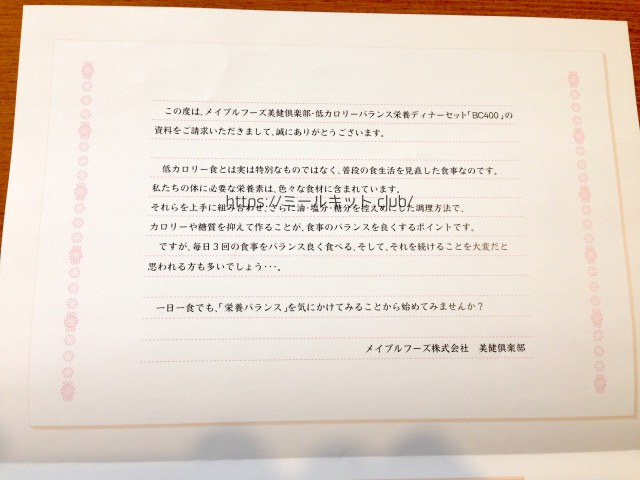 この度は、メイプルフーズ美健倶楽部・低カロリーバランス栄養ディナーセット「BC400」の
資料をご請求いただきまして、誠にありがとうございます。
低カロリー食とは実は特別なものではなく、普段の食生活を見直した食事なのです。
私たちの体に必要な栄養素は、色々な食材に含まれています。
https://ミールキット.club/
それらを上手に組み合わせ、さらに油・塩分・糖分を控えめにした調理方法で、
カロリーや糖質を抑えて作ることが、食事のバランスを良くするポイントです。
ですが、毎日3回の食事をバランス良く食べる、そして、それを続けることを大変だと
思われる方も多いでしょう・・・。
一日一食でも、「栄養バランス」を気にかけてみることから始めてみませんか？
メイプルフーズ株式会社　美健倶楽部